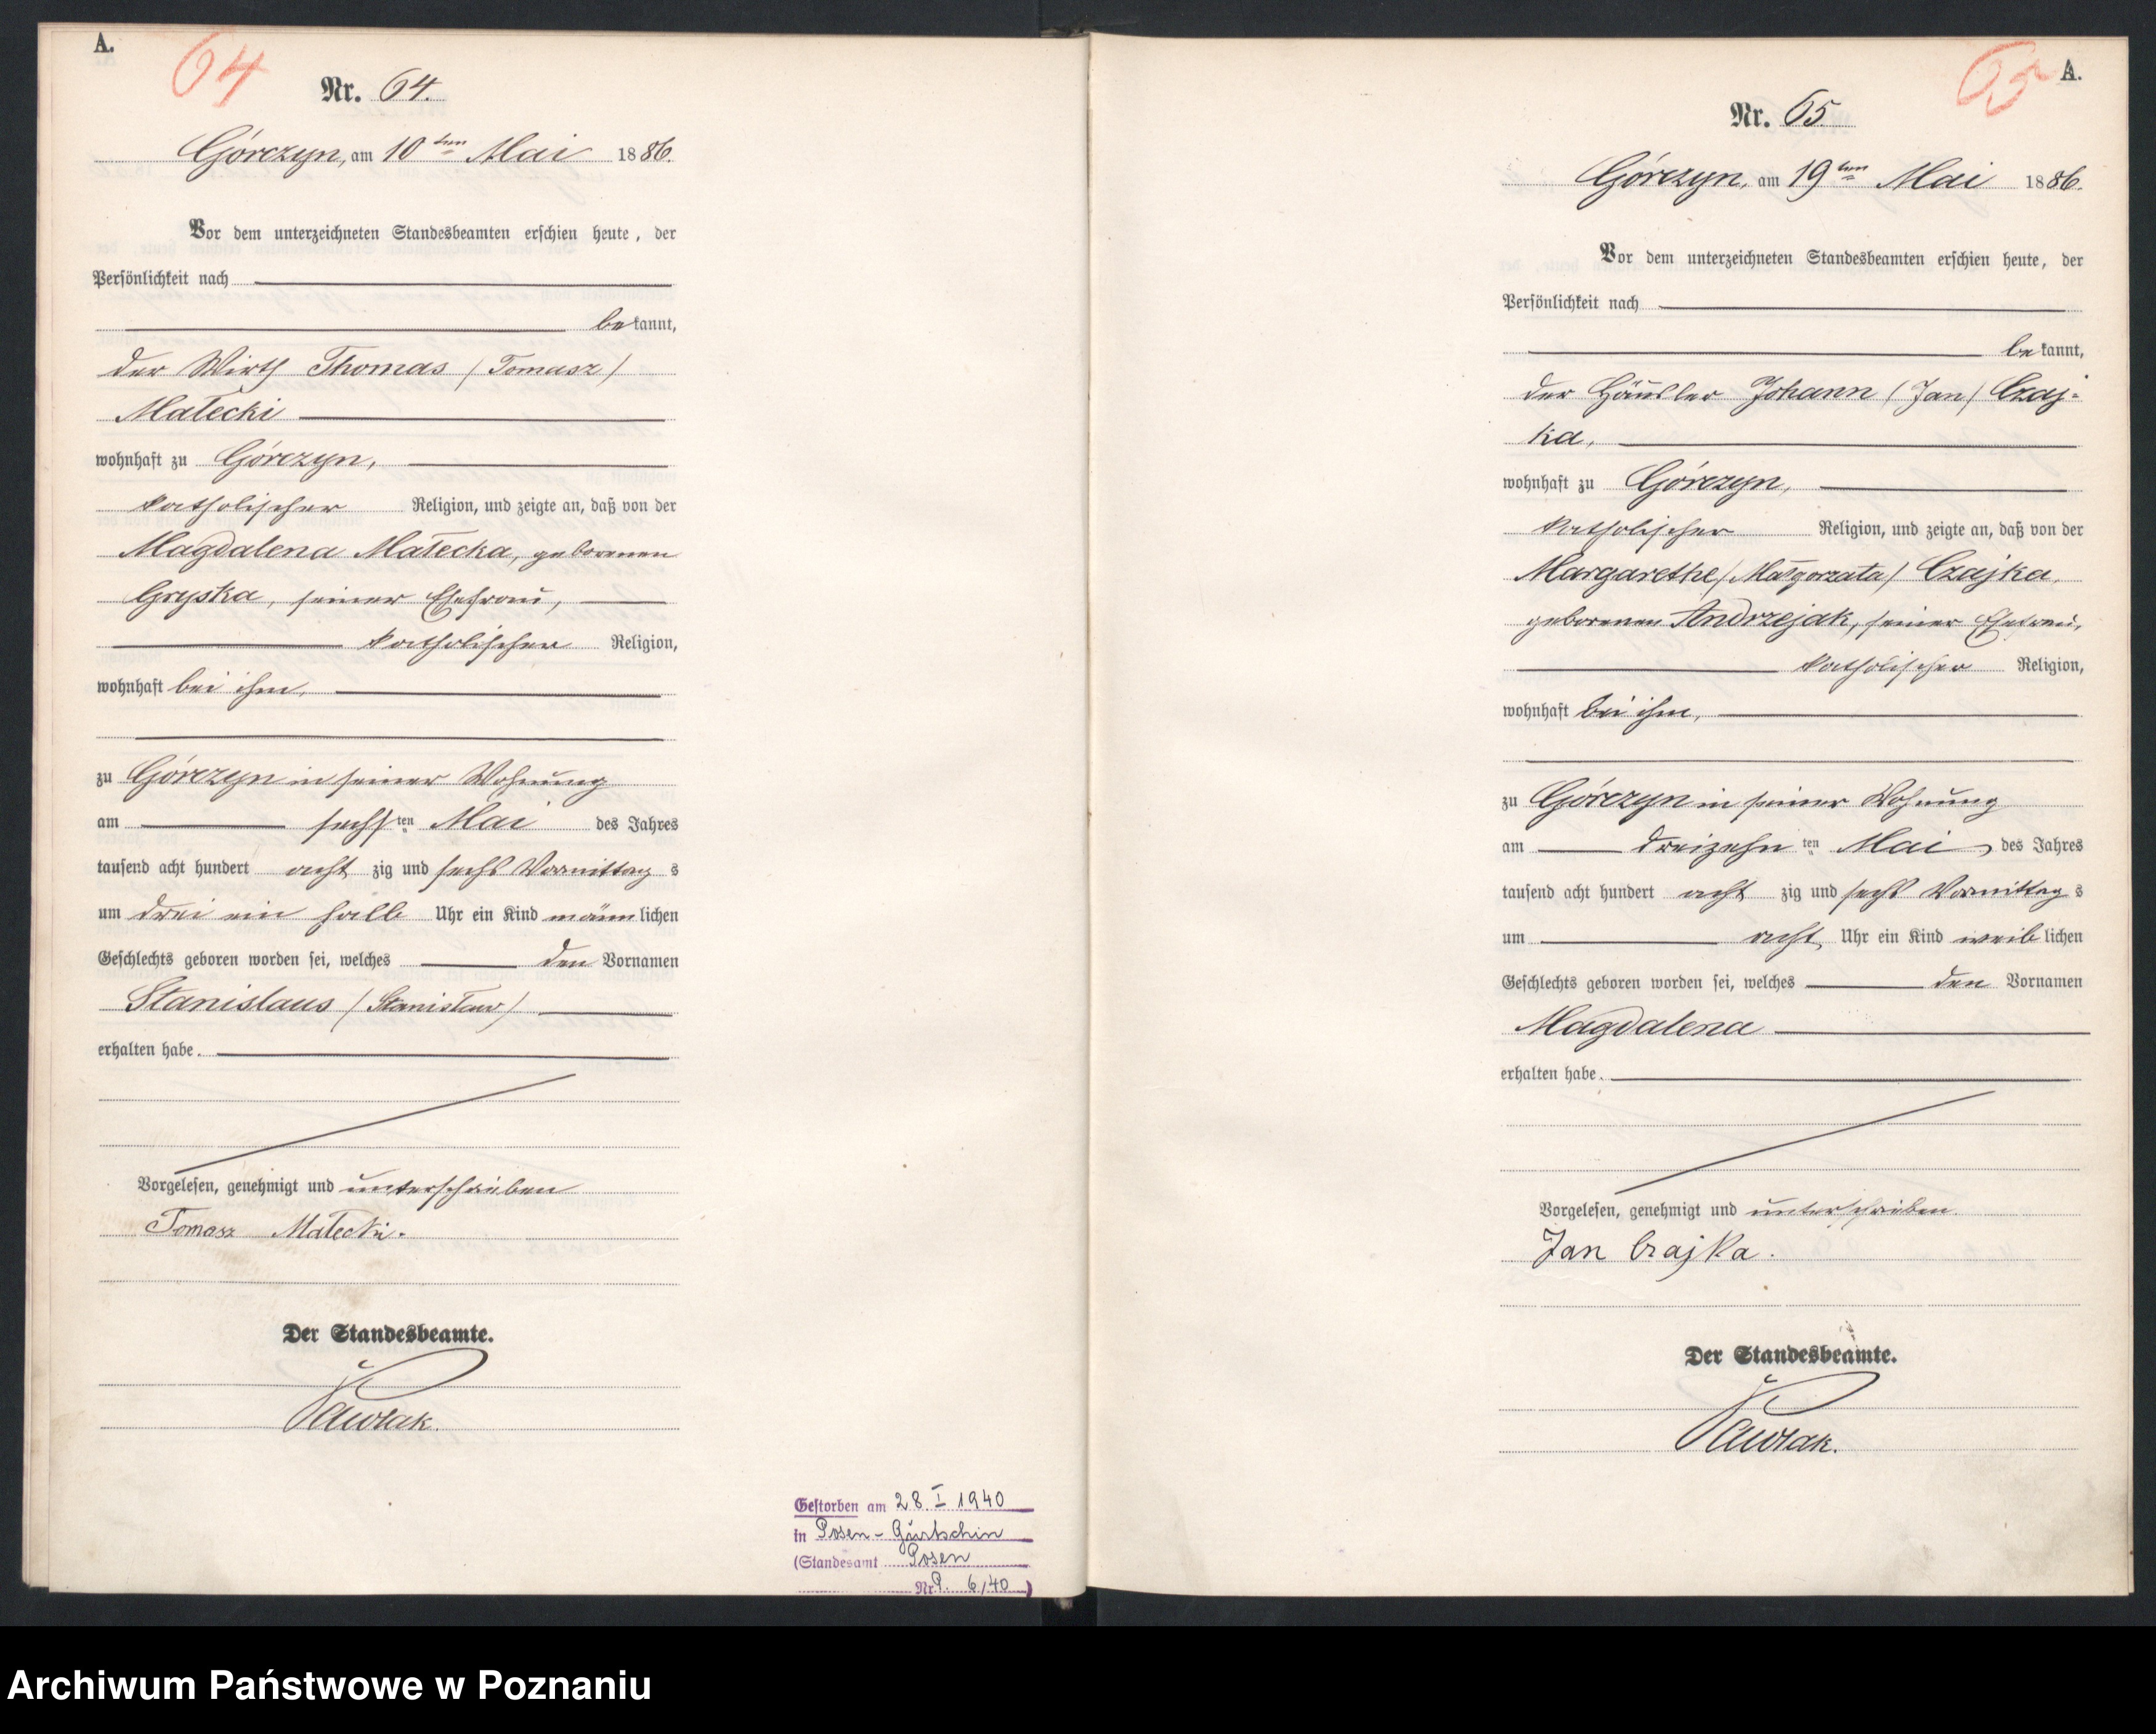 A.
64
Nr. 64.
Górczyn, am 10ten Mai 1886.
Vor dem unterzeichneten Standesbeamten erschien heute, der
Persönlichkeit nach
bekannt,
der Wirth Thomas /Tomasz/
Małecki
wohnhaft zu Górczyn,
katholischer Religion, und zeigte an, daß von der
Magdalena Małecka, geborenen
Gryska, seiner Ehefrau,
katholischer Religion,
wohnhaft bei ihm,
zu Górczyn in seiner Wohnung
am sechsten Mai des Jahres
tausend acht hundert achtzig und sechs Vormittags
um drei ein halb Uhr ein Kind männlichen
Geschlechts geboren worden sei, welches den Vornamen
Stanislaus /Stanisław/
erhalten habe.
Vorgelesen, genehmigt und unterschrieben
Tomasz Małecki.
Der Standesbeamte.
Pawlak.
Gestorben am 28. I 1940
in Posen-Gurtschin
(Standesamt Posen
Nr. 6/40)
65
A.
Nr. 65
Górczyn, am 19ten Mai 1886.
Vor dem unterzeichneten Standesbeamten erschien heute, der
Persönlichkeit nach
bekannt,
der Häusler Johann /Jan/ Czaj-
ka,
wohnhaft zu Górczyn,
katholischer Religion, und zeigte an, daß von der
Margarethe /Małgorzata/ Czajka,
geborenen Andrzejak, seiner Ehefrau,
katholischer Religion,
wohnhaft bei ihm,
zu Górczyn in seiner Wohnung
am dreizehnten Mai, des Jahres
tausend acht hundert achtzig und sechs Vormittags
um acht Uhr ein Kind weiblichen
Geschlechts geboren worden sei, welches den Vornamen
Magdalena
erhalten habe.
Vorgelesen, genehmigt und unterschrieben.
Jan Czajka.
Der Standesbeamte.
Pawlak.
Archiwum Państwowe w Poznaniu